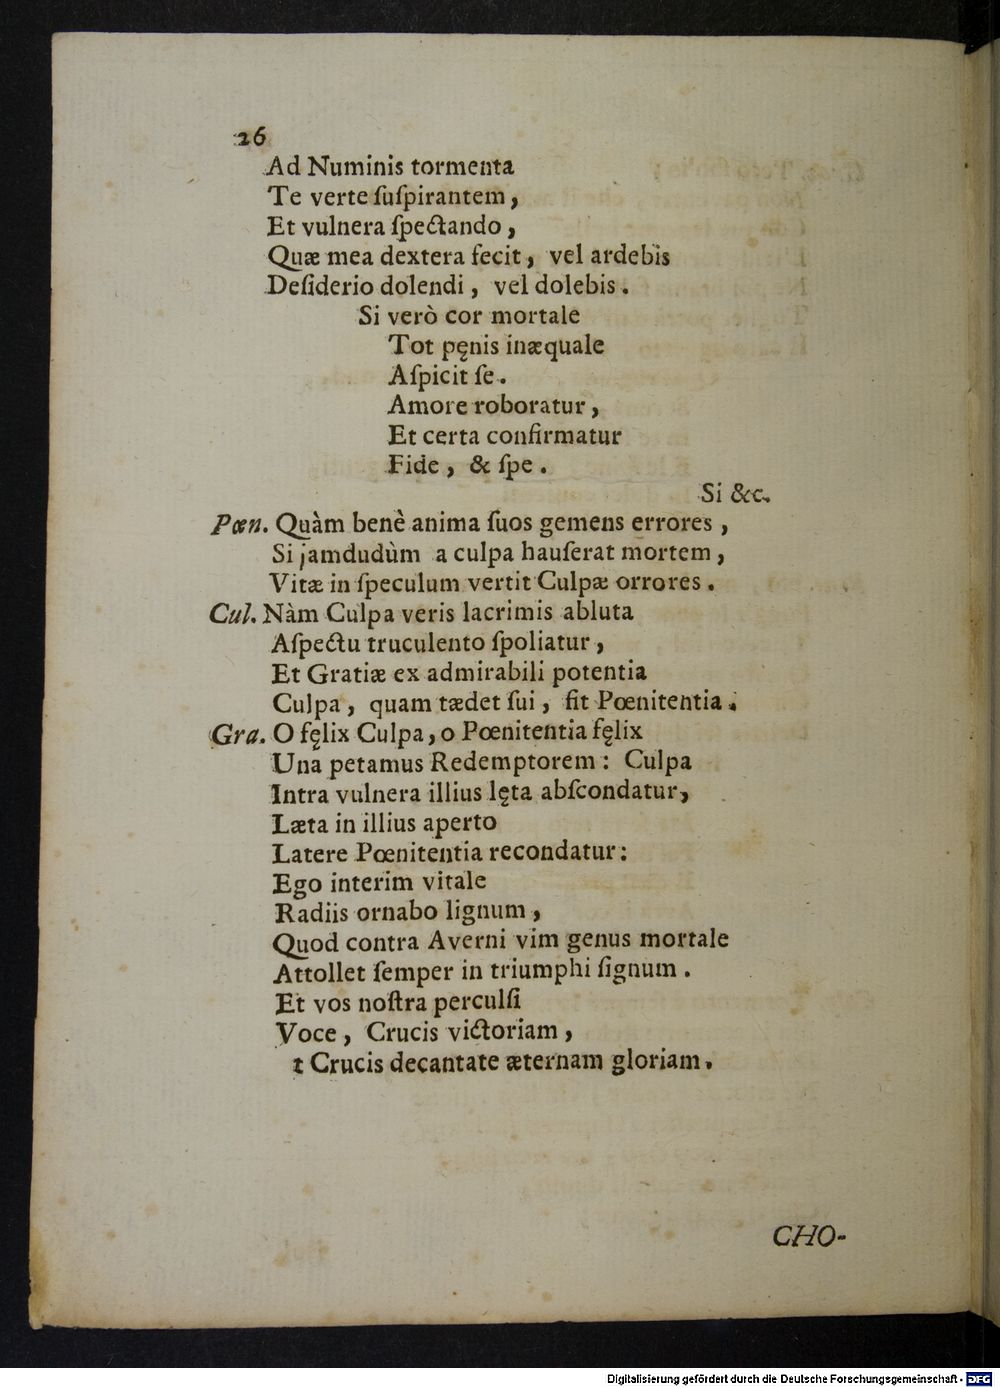 26
Ad Numinis tormenta
Te verte ſuſpirantem,
Et vulnera ſpectando,
Quæ mea dextera fecit, vel ardebis
Deſiderio dolendi, vel dolebis.
Si verò cor mortale
Tot pęnis inæquale
Aſpicit ſe.
Amore roboratur,
Et certa confirmatur
Fide, & ſpe.
Si &c.
Pœn. Quàm benè anima ſuos gemens errores,
Si jamdudùm a culpa hauſerat mortem,
Vitæ in ſpeculum vertit Culpæ orrores.
Cul. Nàm Culpa veris lacrimis abluta
Aſpectu truculento ſpoliatur,
Et Gratiæ ex admirabili potentia
Culpa, quam tædet ſui, fit Pœnitentia.
Gra. O fęlix Culpa, o Pœnitentia fęlix
Una petamus Redemptorem: Culpa
Intra vulnera illius lęta abſcondatur,
Læta in illius aperto
Latere Pœnitentia recondatur:
Ego interim vitale
Radiis ornabo lignum,
Quod contra Averni vim genus mortale
Attollet ſemper in triumphi ſignum.
Et vos noſtra perculſi
Voce, Crucis victoriam,
t Crucis decantate æternam gloriam.
CHO-
Digitalisierung gefördert durch die Deutsche Forschungsgemeinschaft - DFG